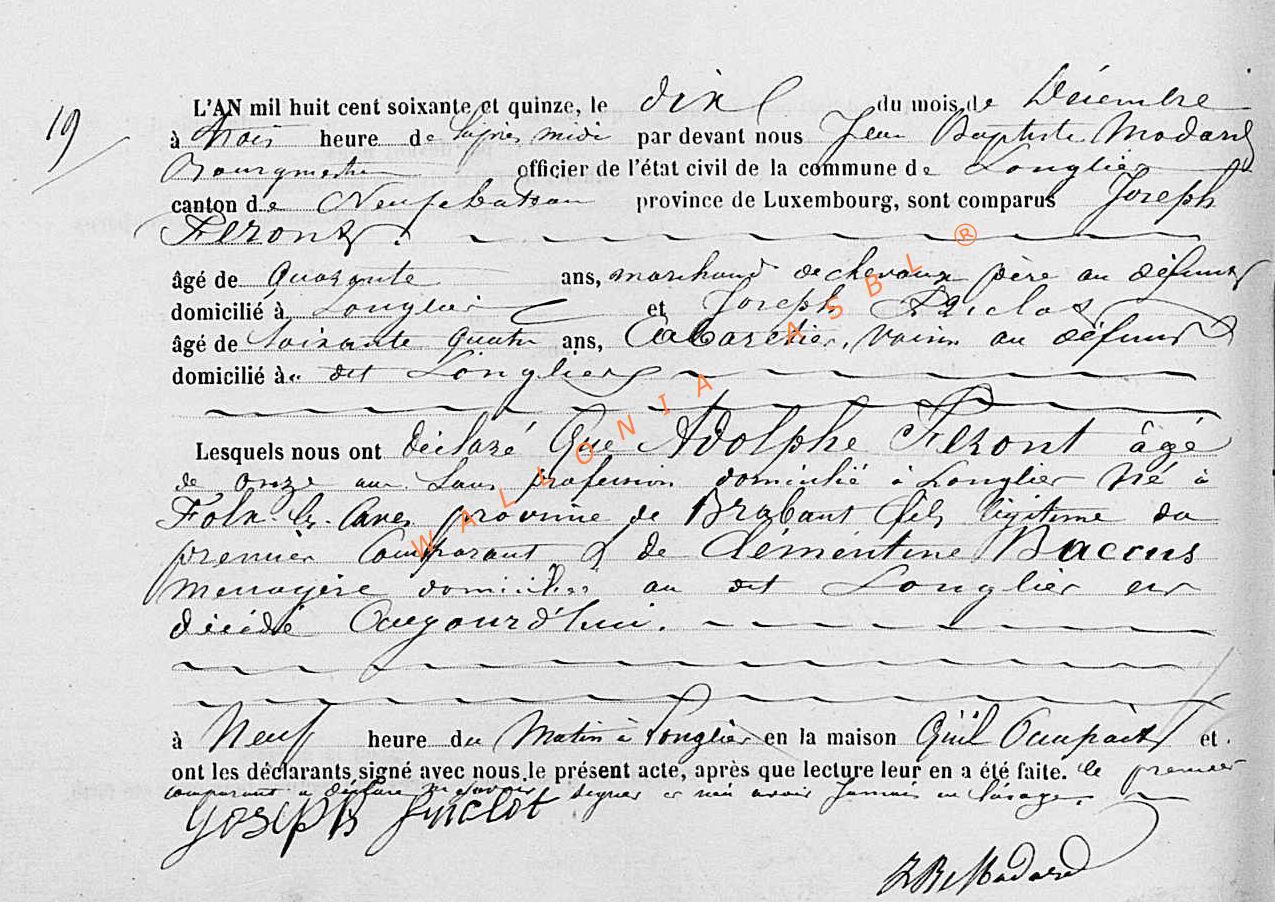 19
L'AN mil huit cent soixante et quinze, le dix du mois de Décembre
à trois heure de l'après midi par devant nous Jean Baptiste Modard
Bourgmestre officier de l'état civil de la commune de Longlier
canton de Neufchateau province de Luxembourg, sont comparus Joseph
Feront.
âgé de Quarante ans, marchand de chevaux père au défunt
domicilié à Longlier et Joseph
âgé de Soixante quatre ans, Cabaretier, voisin au défunt
domicilié à dit Longlier
Lesquels nous ont déclaré Que Adolphe Feront âgé
de onze ans Sans profession domicilié à Longlier Né à
Folx-les-Caves province de Brabant fils légitime du
premier Comparant & de Clémentine Baccus
menagère domiciliée au dit Longlier est
décédé Aujourd'hui.
à Neuf heure du Matin à Longlier en la maison Qu'il Occupait et
ont les déclarants signé avec nous le présent acte, après que lecture leur en a été faite. le premier
comparant a déclaré ne savoir signer
Joseph
Modard
WALLONIA ASBL ®